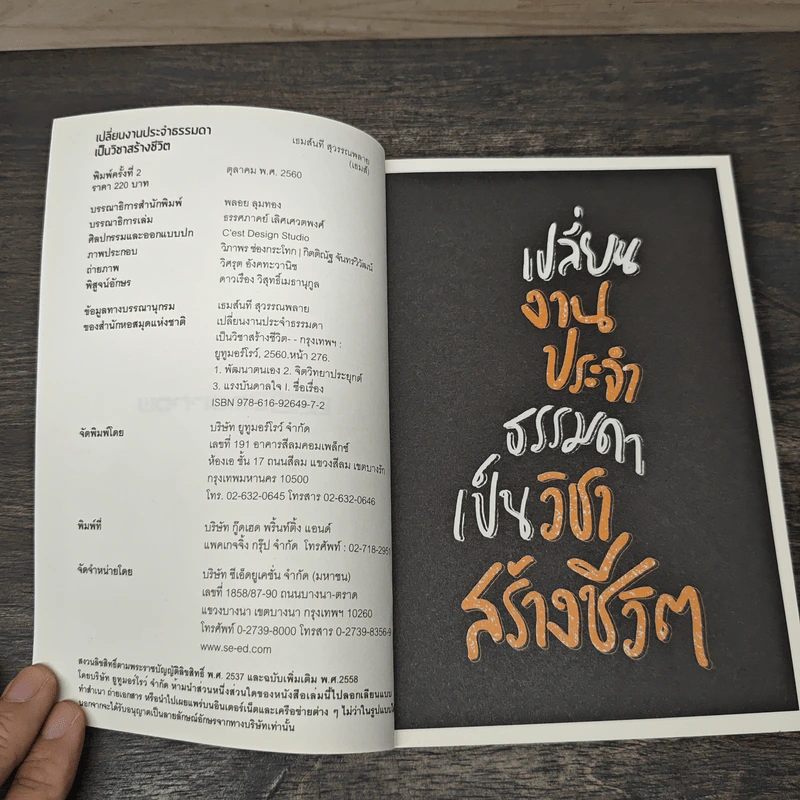 เปลี่ยนงานประจำธรรมดา
เป็นวิชาสร้างชีวิต
เธมส์นที สุวรรณพลาย
(เธมส์)
พิมพ์ครั้งที่ 2 ตุลาคม พ.ศ. 2560
ราคา 220 บาท
บรรณาธิการสำนักพิมพ์ พลอย ลุมทอง
บรรณาธิการเล่ม ธรรศภาคย์ เลิศเศวตพงศ์
ศิลปกรรมและออกแบบปก C'est Design Studio
ภาพประกอบ วิภาพร ช่องกระโทก | กิตติณัฐ จันทร์วิวัฒน์
ถ่ายภาพ วิศรุต อังคทะวานิช
พิสูจน์อักษร ดาวเรือง วิสุทธิ์เมธานุกูล
ข้อมูลทางบรรณานุกรม เธมส์นที สุวรรณพลาย
ของสำนักหอสมุดแห่งชาติ เปลี่ยนงานประจำธรรมดา
เป็นวิชาสร้างชีวิต- - กรุงเทพฯ :
ยูทูมอร์โรว์, 2560.หน้า 276.
1. พัฒนาตนเอง 2. จิตวิทยาประยุกต์
3. แรงบันดาลใจ I. ชื่อเรื่อง
ISBN 978-616-92649-7-2
จัดพิมพ์โดย บริษัท ยูทูมอร์โรว์ จำกัด
เลขที่ 191 อาคารสีลมคอมเพล็กซ์
ห้องเอ ชั้น 17 ถนนสีลม แขวงสีลม เขตบางรัก
กรุงเทพมหานคร 10500
โทร. 02-632-0645 โทรสาร 02-632-0646
พิมพ์ที่ บริษัท กู๊ดเฮด พริ้นท์ติ้ง แอนด์
แพคเกจจิ้ง กรุ๊ป จำกัด โทรศัพท์ : 02-718-2951
จัดจำหน่ายโดย บริษัท ซีเอ็ดยูเคชั่น จำกัด (มหาชน)
เลขที่ 1858/87-90 ถนนบางนา-ตราด
แขวงบางนา เขตบางนา กรุงเทพฯ 10260
โทรศัพท์ 0-2739-8000 โทรสาร 0-2739-8356-9
www.se-ed.com
สงวนลิขสิทธิ์ตามพระราชบัญญัติลิขสิทธิ์ พ.ศ. 2537 และฉบับเพิ่มเติม พ.ศ.2558
โดยบริษัท ยูทูมอร์โรว์ จำกัด ห้ามนำส่วนหนึ่งส่วนใดของหนังสือเล่มนี้ไปลอกเลียนแบบ
ทำสำเนา ถ่ายเอกสาร หรือนำไปเผยแพร่บนอินเตอร์เน็ตและเครือข่ายต่าง ๆ ไม่ว่าในรูปแบบใด
นอกจากจะได้รับอนุญาตเป็นลายลักษณ์อักษรจากทางบริษัทเท่านั้น
เปลี่ยน
งาน
ประจำ
ธรรมดา
เป็นวิชา
สร้างชีวิต